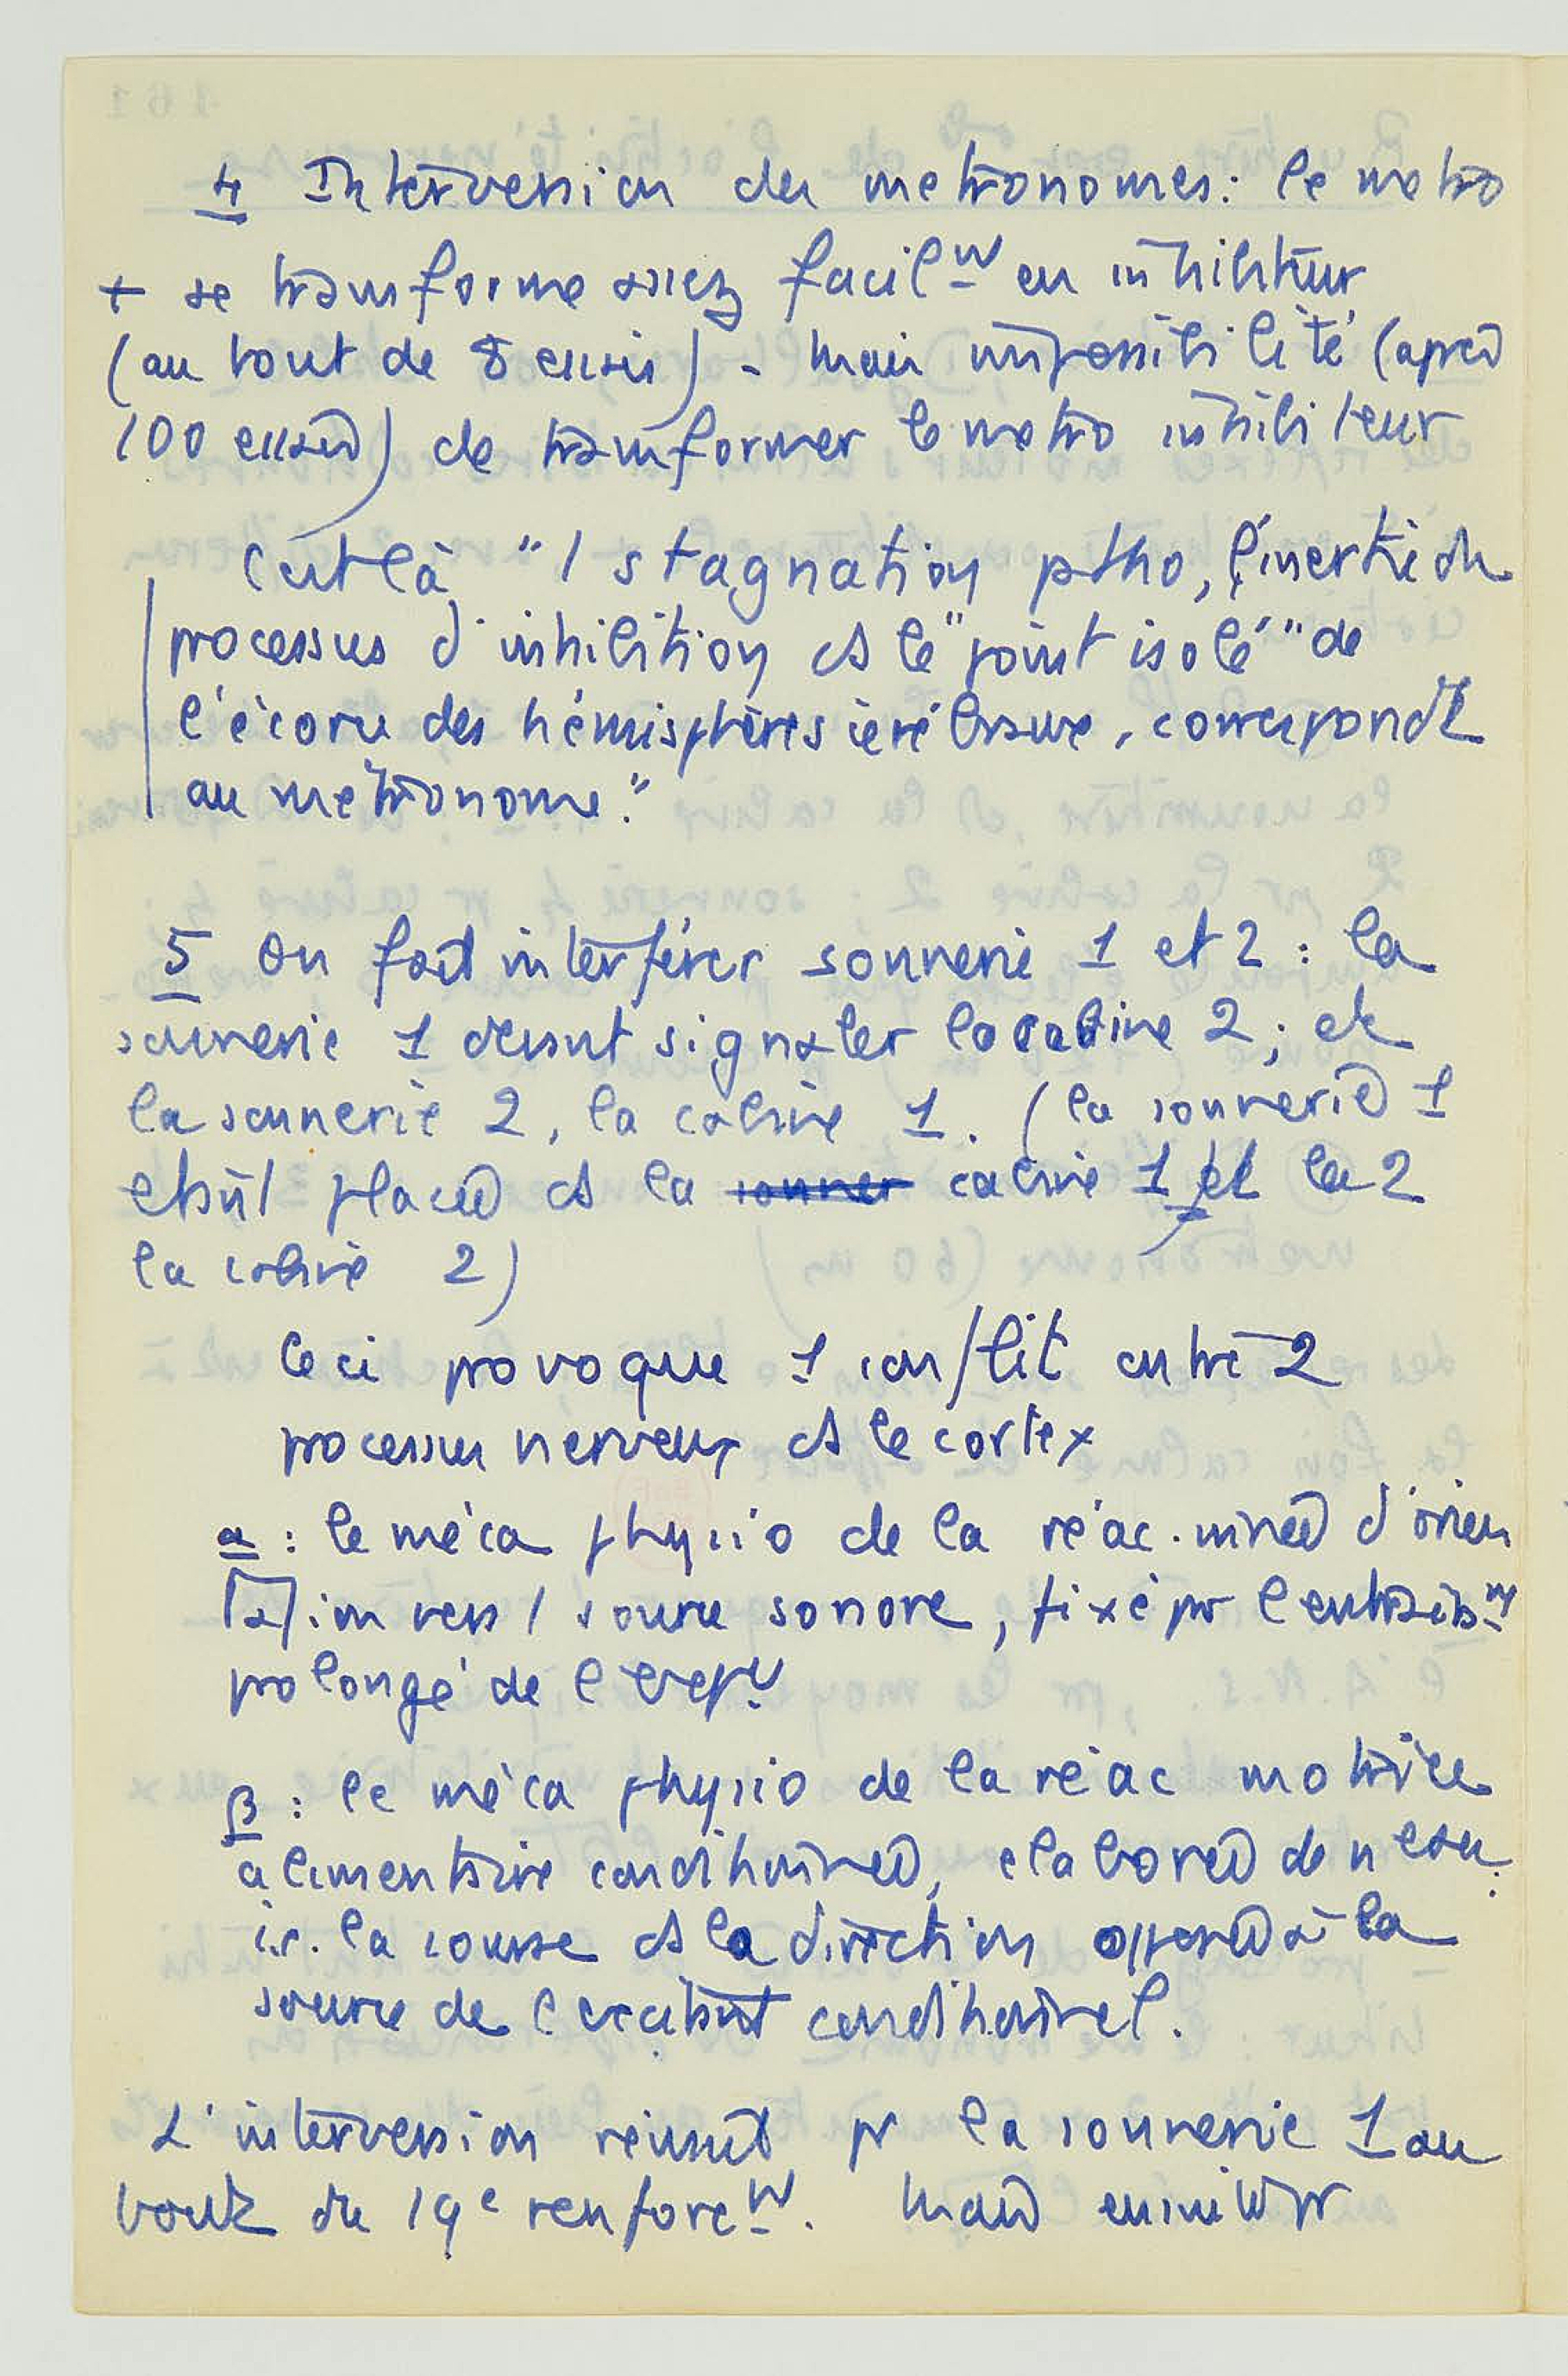 4 Interversion des metronomes : le metro
+ se transforme assez facil^nt en inhibiteur
(au bout de 8 essais) - mais impossibilité (après
100 essais) de transformer le metro inhibiteur
C'est là "1 stagnation patho, l'inertie du
processus d'inhibition ds le "point isolé" de
l'écorce des hémisphères cérébraux, correspondt
au metronome."
5 On fait interférer sonnerie 1 et 2 : la
sonnerie 1 devant signaler la cabine 2 ; et
la sonnerie 2, la cabine 1. (la sonnerie 1
était placée ds la sonner cabine 1 et la 2
la cabine 2)
Ceci provoque 1 conflit entre 2
processus nerveux ds le cortex
α : le méca physio de la réac. innée d'orien
tation vers 1 source sonore, fixé pr l'entraîn^nt
prolongé de
β : le méca physio de la réac motrice
alimentaire conditionnée, élaborée de
i.e. la course ds la direction opposée à la
source de l'excitant conditionnel.
L'interversion réussit pr la sonnerie 1 au
bout du 19e renforc^nt. Mais ensuite pr